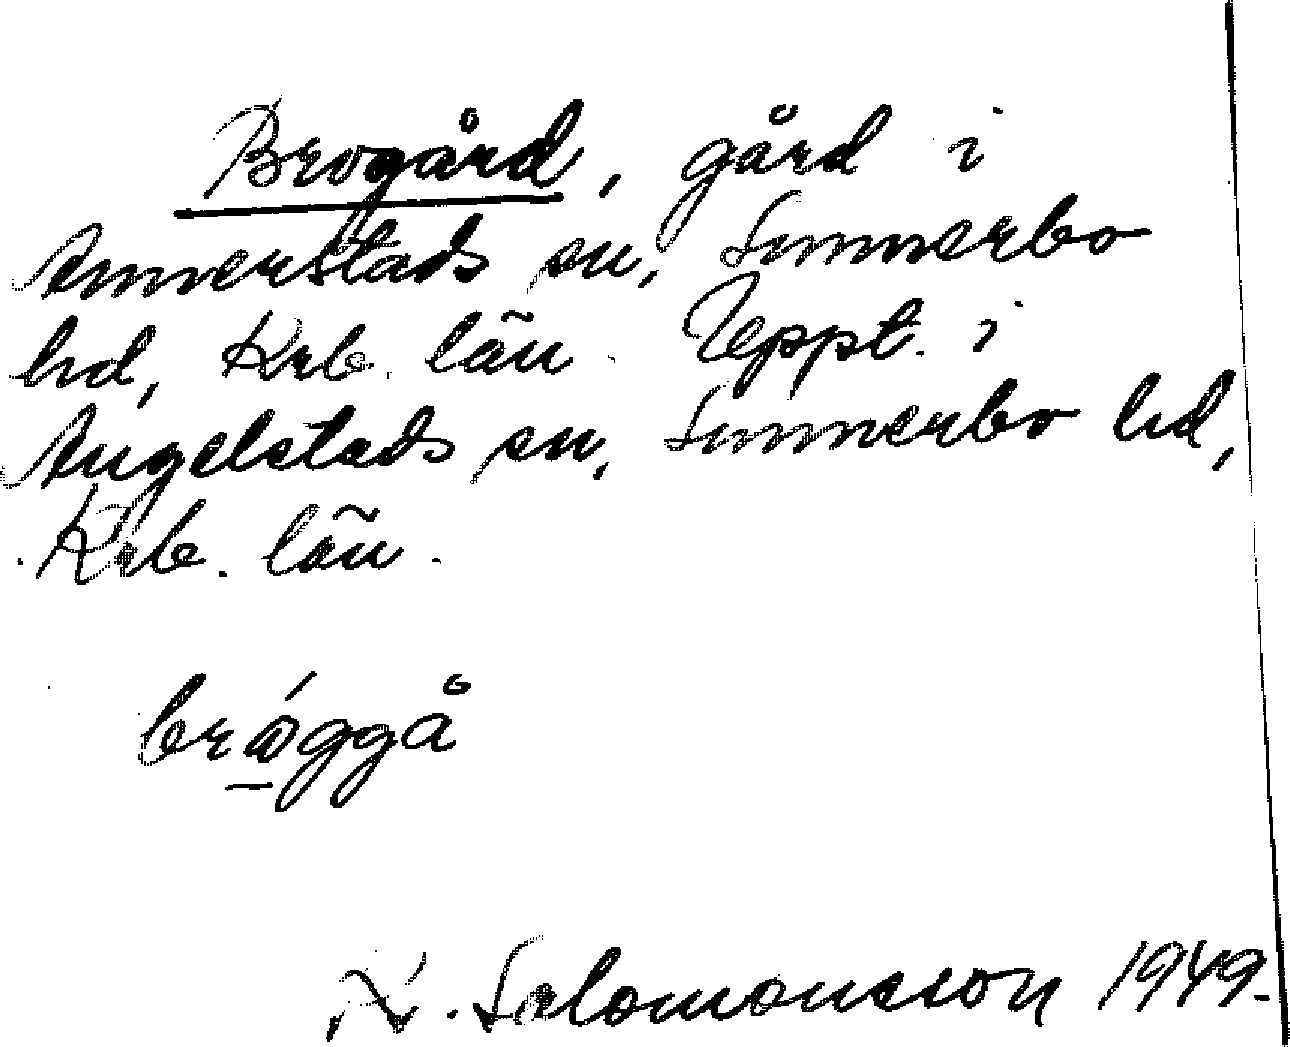 Brogård, gård i
Annerstads sn, Sunnerbo
hd, Krb. län. Uppt. i
Angelstads sn, Sunnerbo hd,
Krb. län.
brǿggå
Salomonsson 1949.